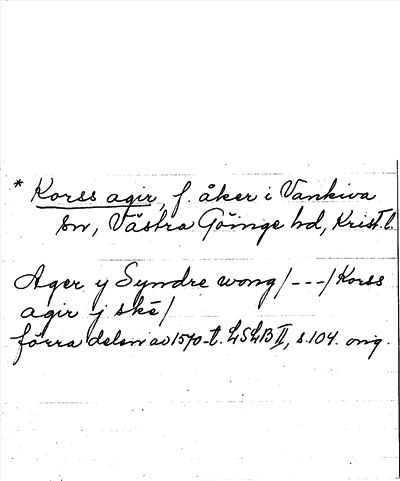 * Korss agir, f. åker i Vankiva
sn, Västra Göinge hd, Krist. l.
Ager y Syndre wong/---/Korss
agir j skĕ/
förra delen av 1570-t. LSLB II, s. 104. orig.